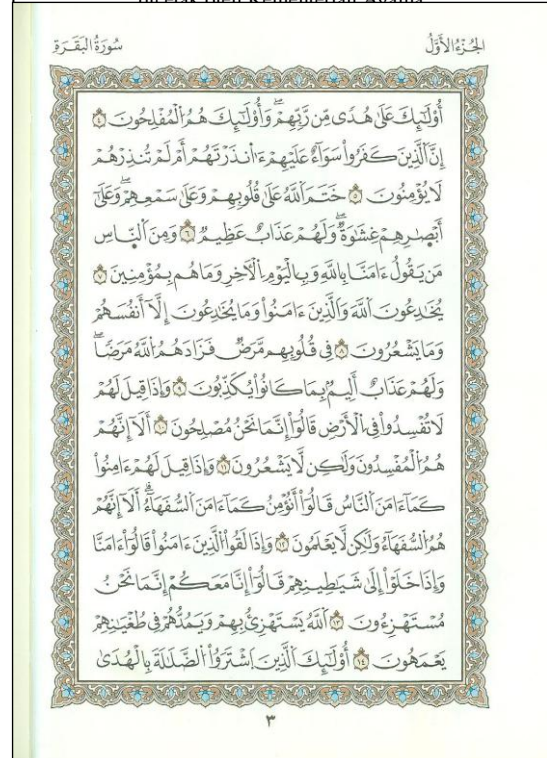 Dicetak oleh Kementerian Agama
الجُزْءُ الأَوَّلُ
سُورَةُ البَقَرَةِ
أُوْلَٰٓئِكَ عَلَىٰ هُدٗى مِّن رَّبِّهِمْۖ وَأُوْلَٰٓئِكَ هُمُ اُ۬لْمُفْلِحُونَ ٤
إِنَّ اَ۬لذِينَ كَفَرُواْ سَوَآءٌ عَلَيْهِمْ ءَا۬نذَرْتَهُمْ أَمْ لَمْ تُنذِرْهُمْ
لَا يُؤْمِنُونَ ٥ خَتَمَ اَ۬للَّهُ عَلَىٰ قُلُوبِهِمْ وَعَلَىٰ سَمْعِهِمْۖ وَعَلَىٰٓ
أَبْصٰ۪رِهِمْ غِشَٰوَةٞۖ وَلَهُمْ عَذَابٌ عَظِيمٞ ٦ وَمِنَ اَ۬لنَّاسِ
مَن يَقُولُ ءَامَنَّا بِاللَّهِ وَبِالْيَوْمِ اِ۬لْأٓخِرِ وَمَا هُم بِمُؤْمِنِينَ ٧
يُخَٰدِعُونَ اَ۬للَّهَ وَالذِينَ ءَامَنُواْ وَمَا يُخَٰدِعُونَ إِلَّآ أَنفُسَهُمْ
وَمَا يَشْعُرُونَ ٨ فِي قُلُوبِهِم مَّرَضٞ فَزَادَهُمُ اُ۬للَّهُ مَرَضٗاۖ
وَلَهُمْ عَذَابٌ أَلِيمُۢ بِمَا كَانُواْ يُكَذِّبُونَ ٩ وَإِذَا قِيلَ لَهُمْ
لَا تُفْسِدُواْ فِي اِ۬لْأَرْضِ قَالُوٓاْ إِنَّمَا نَحْنُ مُصْلِحُونَ ١٠ أَلَآ إِنَّهُمْ
هُمُ اُ۬لْمُفْسِدُونَ وَلَٰكِن لَّا يَشْعُرُونَ ١١ وَإِذَا قِيلَ لَهُمْ ءَامِنُواْ
كَمَآ ءَامَنَ اَ۬لنَّاسُ قَالُوٓاْ أَنُؤْمِنُ كَمَآ ءَامَنَ اَ۬لسُّفَهَآءُۗ أَلَآ إِنَّهُمْ
هُمُ اُ۬لسُّفَهَآءُ وَلَٰكِن لَّا يَعْلَمُونَ ١٢ وَإِذَا لَقُواْ اُ۬لذِينَ ءَامَنُواْ قَالُوٓاْ ءَامَنَّا
وَإِذَا خَلَوْاْ إِلَىٰ شَيَٰطِينِهِمْ قَالُوٓاْ إِنَّا مَعَكُمْ إِنَّمَا نَحْنُ
مُسْتَهْزِءُونَ ١٣ اَ۬للَّهُ يَسْتَهْزِئُ بِهِمْ وَيَمُدُّهُمْ فِي طُغْيَٰنِهِمْ
يَعْمَهُونَ ١٤ أُوْلَٰٓئِكَ اَ۬لذِينَ اَ۪شْتَرَوُاْ اُ۬لضَّلَٰلَةَ بِالْهُدَىٰ
٣